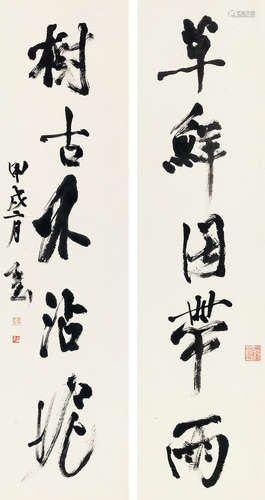 草鲜因带雨
樹古不沾泥
甲戌二月